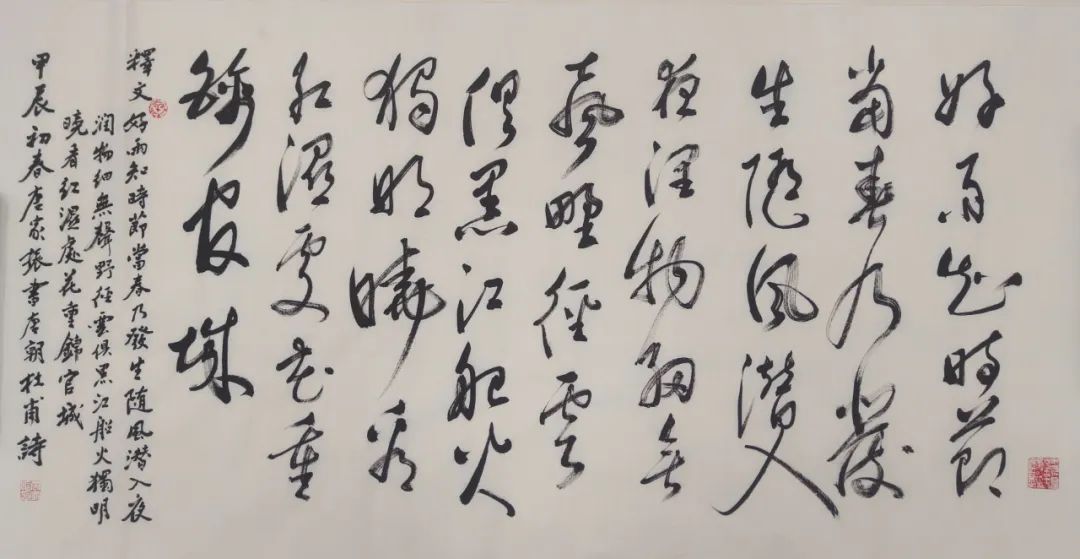 好雨知時節
當春乃發
生隨風潛入
夜潤物細無
聲野徑雲
俱黑江船火
獨明曉看
紅濕處花重
錦官城
釋文 好雨知時節當春乃發生随風潛入夜
润物细無聲野径雲俱黑江船火獨明
曉看红濕處花重錦官城
甲辰初春唐家振書唐朝杜甫詩